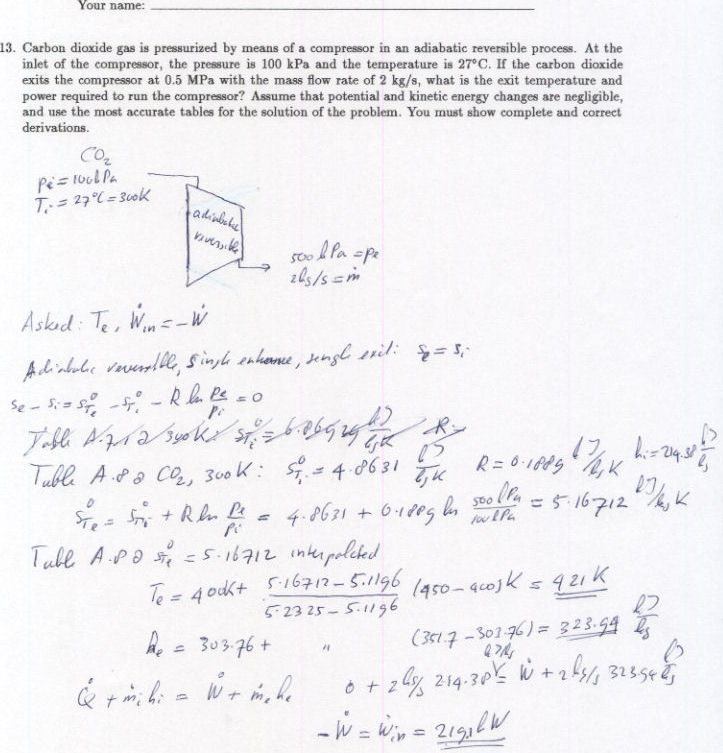 Your name:
13. Carbon dioxide gas is pressurized by means of a compressor in an adiabatic reversible process. At the
inlet of the compressor, the pressure is 100 kPa and the temperature is 27°C. If the carbon dioxide
exits the compressor at 0.5 MPa with the mass flow rate of 2 kg/s, what is the exit temperature and
power required to run the compressor? Assume that potential and kinetic energy changes are negligible,
and use the most accurate tables for the solution of the problem. You must show complete and correct
derivations.
CO₂
Pi = 100kPa
Ti = 27°C = 300K
adiabatic
reversible
500 kPa = pe
2kg/s = ṁ
Asked: Te, Ẇin = -Ẇ
Adiabatic reversible, single entrance, single exit: se = si
se - si = s°Te - s°Ti - R ln Pe/Pi = 0
Table A.8 @ CO₂, 300K: s°Ti = 4.8631 kJ/kgK R = 0.1889 kJ/kgK hi = 214.38 kJ/kg
s°Te = s°Ti + R ln Pe/Pi = 4.8631 + 0.1889 ln 500kPa/100kPa = 5.16712 kJ/kgK
Table A.8 @ s°Te = 5.16712 interpolated
Te = 400K + (5.16712 - 5.1196)/(5.2325 - 5.1196) (450 - 400)K = 421K
he = 303.76 + " (351.7 - 303.76) kJ/kg = 323.94 kJ/kg
Q̇ + ṁi hi = Ẇ + ṁe he 0 + 2 kg/s 214.38 = Ẇ + 2 kg/s 323.94 kJ/kg
-Ẇ = Ẇin = 219.1 kW